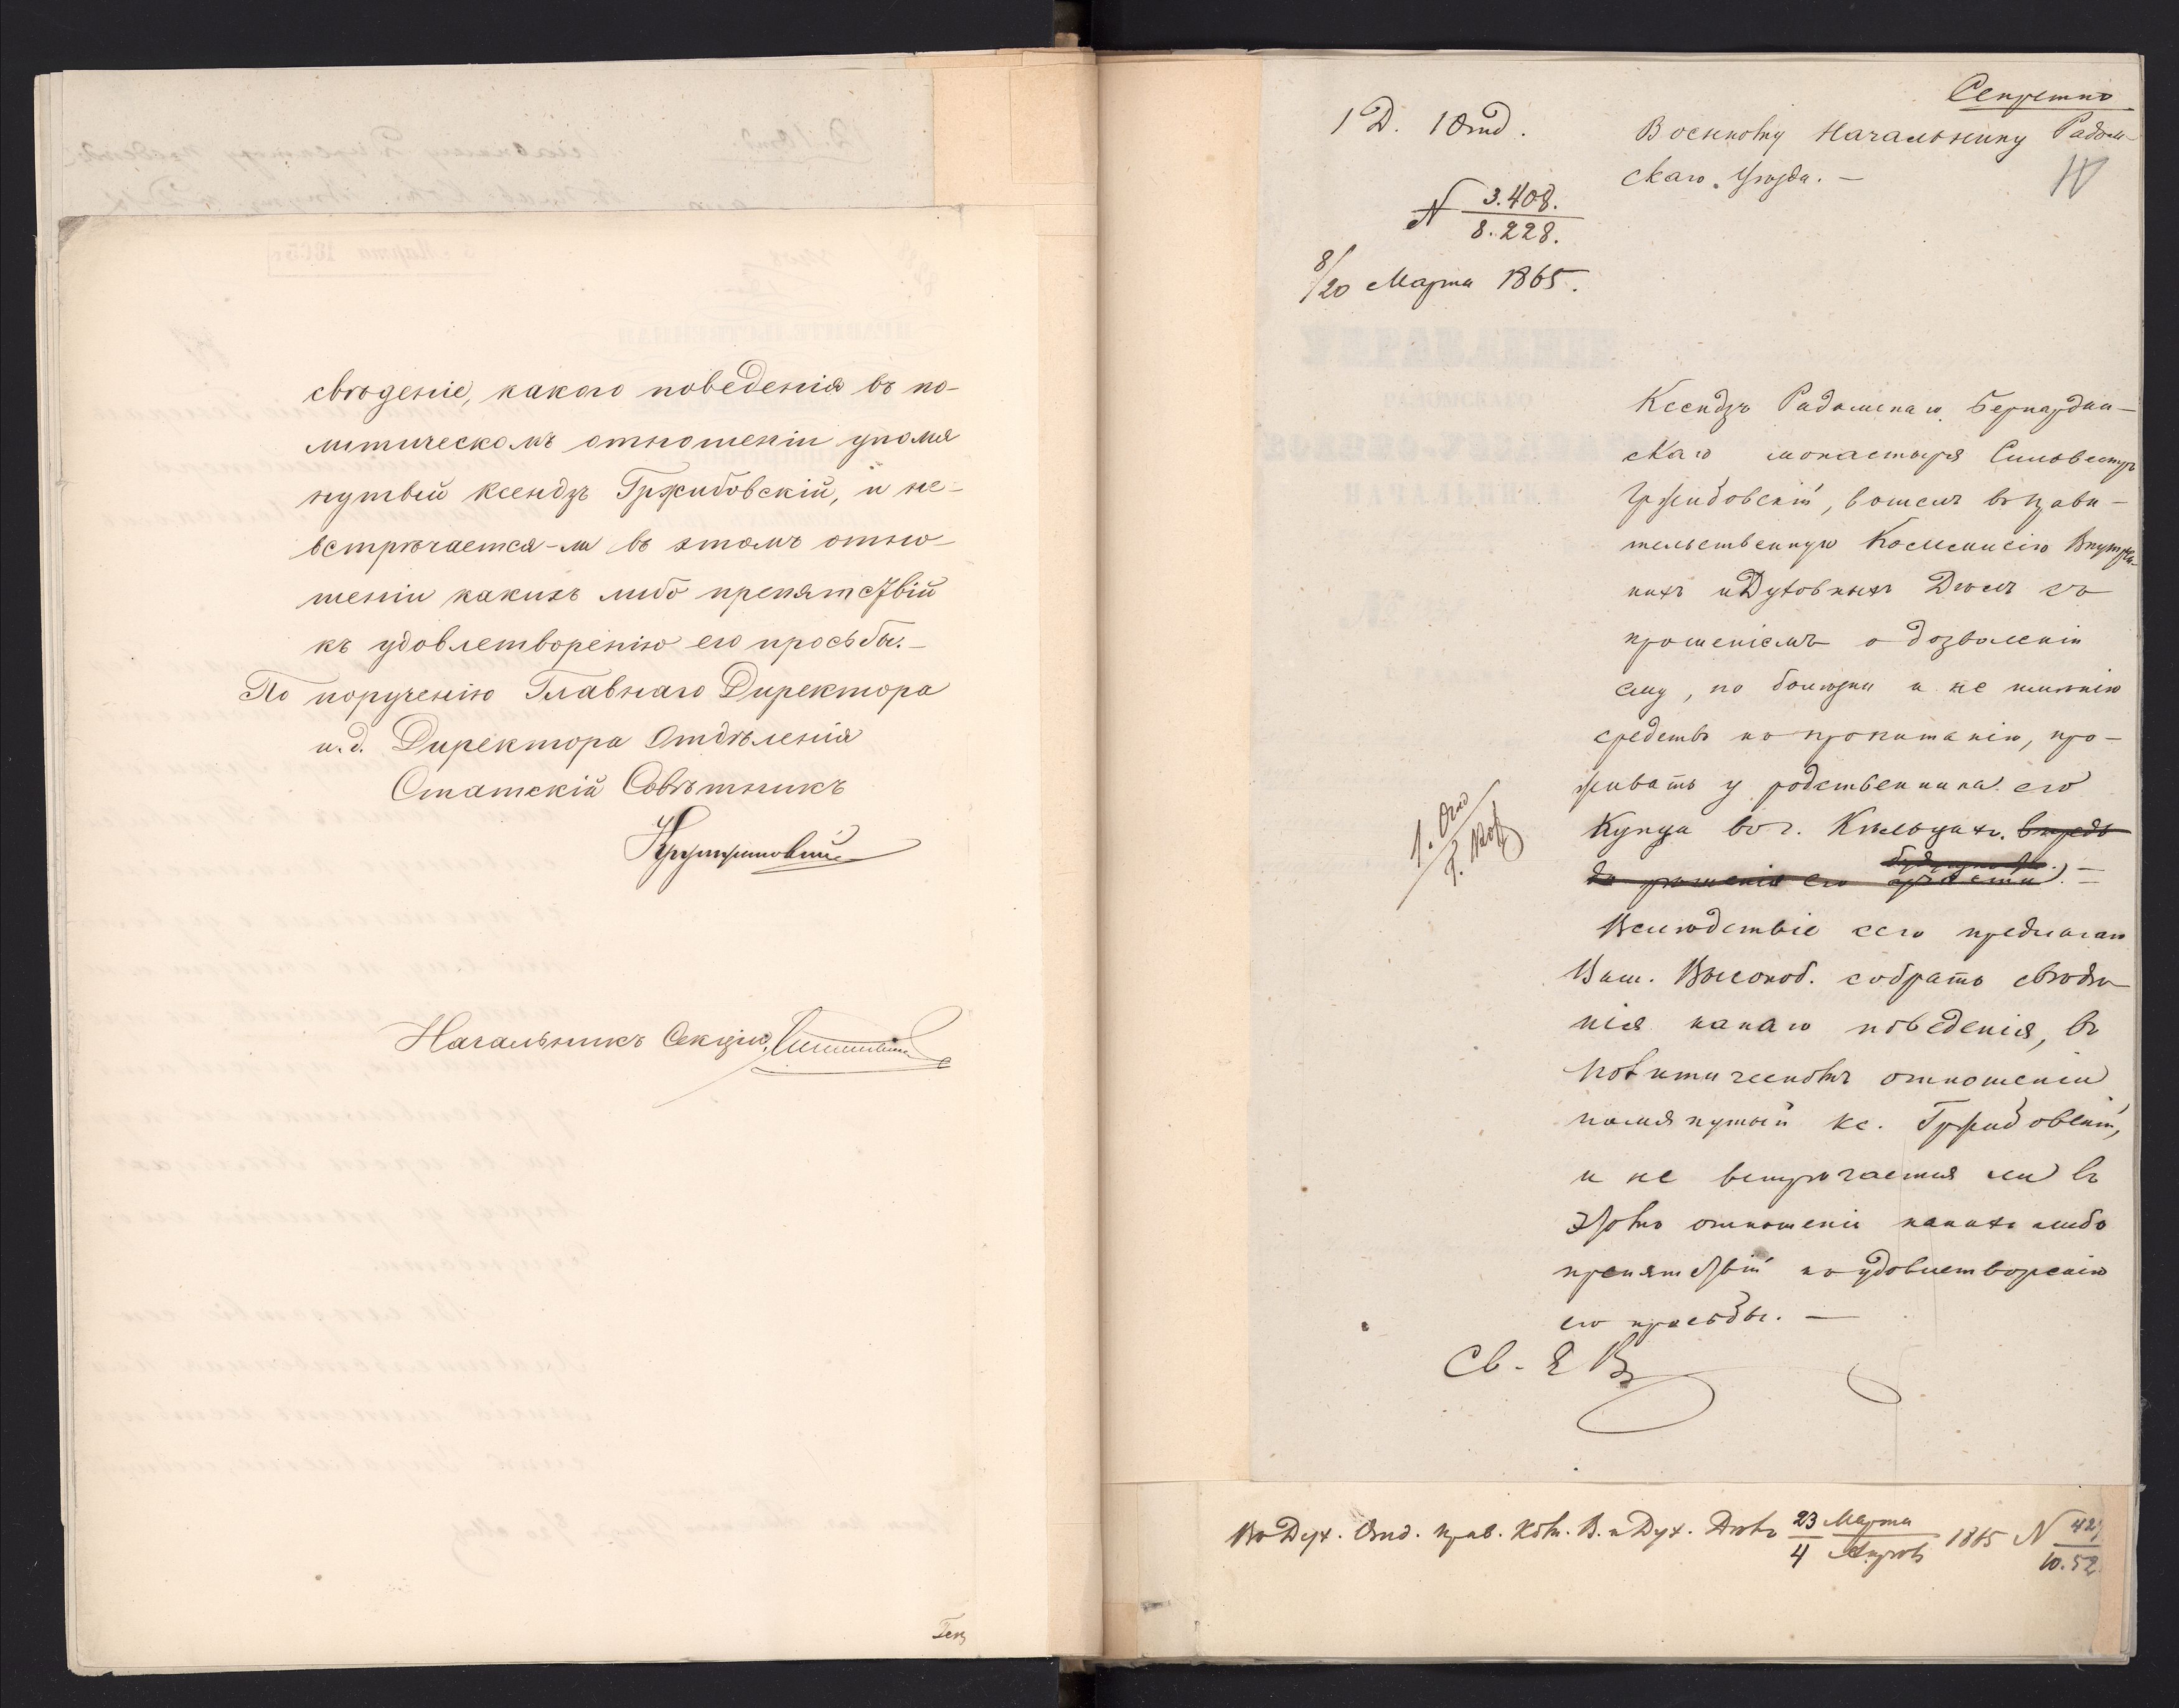 свѣденіе, какого поведенія въ по-
литическомъ отношеніи упомя
нутый ксендзъ Гржибовскій, и не-
встрѣчается-ли въ этомъ отно-
шеніи какихъ либо препятствій
къ удовлетворенію его просьбы.-
По порученію Главнаго Директора
и.д. Директора Отдѣленія
Статскій Совѣтникъ
Начальникъ Секціи
Секретно
1 Д. 1 Отд.
Военному Начальнику Радом-
скаго Уѣзда. -
N 3.408.
8.228.
8/20 Марта 1865.
Ксендзъ Радомскаго Бернардин-
скаго монастыря Сильвестръ
Гржибовскій, вошелъ въ Прави-
тельственную Коммисію Внутрен-
нихъ и Духовныхъ Дѣлъ съ
прошеніемъ о дозволеніи
ему, по болѣзни и не имѣнію
средствъ къ пропитанію, про-
живать у родственника его
Купца въ г. Кѣльцахъ. впредь
до рѣшенія его
Вслѣдствіе сего предлагаю
Ваш. Высокоб. собрать свѣдѣ-
нія какого поведенія, въ
политическомъ отношеніи
помянутый кс. Гржибовскій,
и не встрѣчается ли въ
этомъ отношеніи какихъ либо
препятствій къ удовлетворенію
его просьбы. -
1. Отд
Св- Е В
Въ Дух. Отд. Прав. Ком. В. и Дух. Дѣлъ 23 Марта / 4 Апрѣл 1865 N 42
10.52